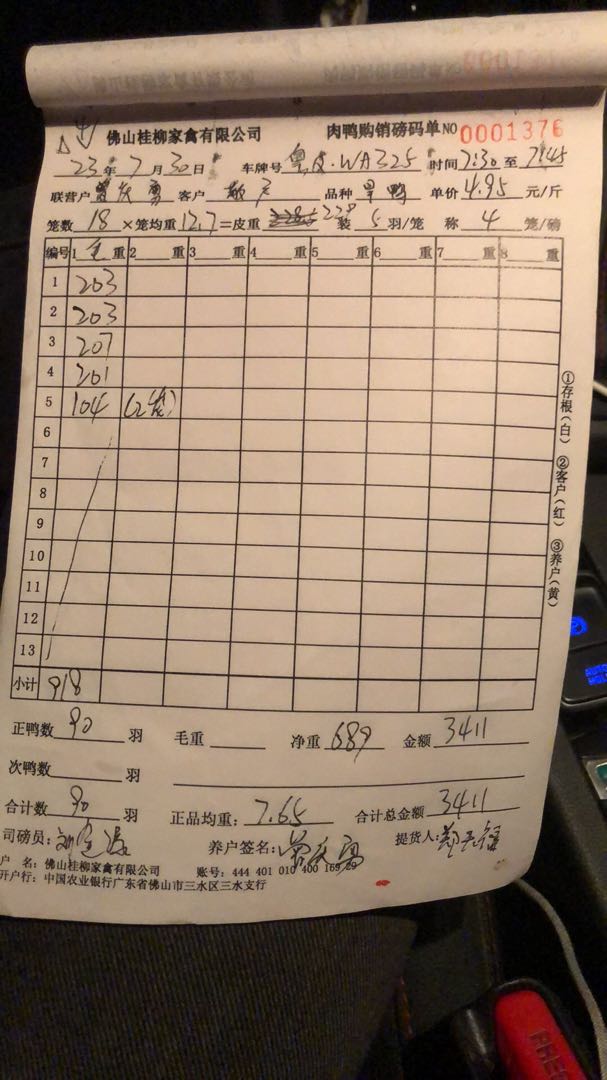 佛山桂柳家禽有限公司 肉鸭购销磅码单NO 0001376
23年7月30日 车牌号 粤Q·WA325 时间 7:30 至 7:45
联营户 曾庆勇 客户 散户 品种 旱鸭 单价 4.95 元/斤
笼数 18 ×笼均重 12.7 =皮重 229 装 5 羽/笼 称 4 笼/磅
编号 1 毛 重 2 重 3 重 4 重 5 重 6 重 7 重 8 重
1 203
2 203
3 207
4 201
5 104 (2笼)
6
7
8
9
10
11
12
13
小计 918
①存根(白) ②客户(红) ③养户(黄)
正鸭数 90 羽 毛重 净重 689 金额 3411
次鸭数 羽
合计数 90 羽 正品均重: 7.65 合计总金额 3411
司磅员: 养户签名: 提货人:
户 名: 佛山桂柳家禽有限公司 账号: 444 401 010 400 169 29
开户行: 中国农业银行广东省佛山市三水区三水支行